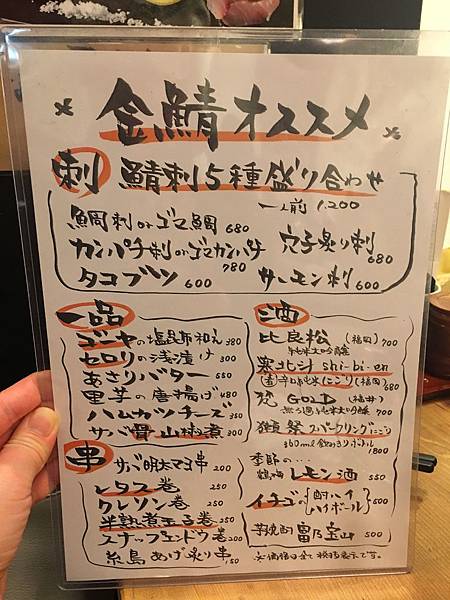 金鯖オススメ
刺 鯖刺5種盛り合わせ
一人前 1,200
鯛刺orゴマ鯛 680
カンパチ刺orゴマカンパチ 780
穴子炙り刺 680
タコブツ 600
サーモン刺 600
一品
ゴーヤの塩昆布和え 380
セロリの浅漬け 300
あさりバター 580
里芋の唐揚げ 480
ハムカツチーズ 350
サバ骨山椒煮 300
串
サバ明太マヨ串 200
レタス巻 250
クレソン巻 250
半熟煮玉子巻 250
スナップエンドウ巻 200
糸島あげ炙り串 150
酒
比良松 (福岡) 700
純米大吟醸
寒北斗 shi-bi-en
辛口純米にごり (福岡) 680
梵 GOLD (福井)
無ろ過純米大吟醸 700
獺祭 スパークリングにごり
360ml飲みきりボトル 1800
季節の…
鶴梅 レモン酒 550
イチゴの 酎ハイ ハイボール 500
芋焼酎 富乃宝山 500
※価格は全て税抜表示です。